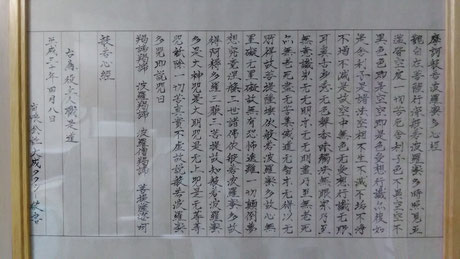 摩訶般若波羅蜜多心経
觀自在菩薩行深般若波羅蜜多時照見五
蘊皆空度一切苦厄舎利子色不異空空不
異色色即是空空即是色受想行識亦復如
是舎利子是諸法空相不生不滅不垢不浄
不増不減是故空中無色無受想行識無眼
耳鼻舌身意無色聲香味觸法無眼界乃至
無意識界無無明亦無無明盡乃至無老死
亦無老死盡無苦集滅道無智亦無得以無
所得故菩提薩埵依般若波羅蜜多故心無
罣礙無罣礙故無有恐怖遠離一切顛倒夢
想究竟涅槃三世諸佛依般若波羅蜜多故
得阿耨多羅三藐三菩提故知般若波羅蜜
多是大神呪是大明呪是無上呪是無等等
呪能除一切苦真實不虚故説般若波羅蜜
多呪即説呪曰
羯諦羯諦 波羅羯諦 波羅僧羯諦 菩提薩婆訶
般若心経
為
平成二十年四月八日
有限会社